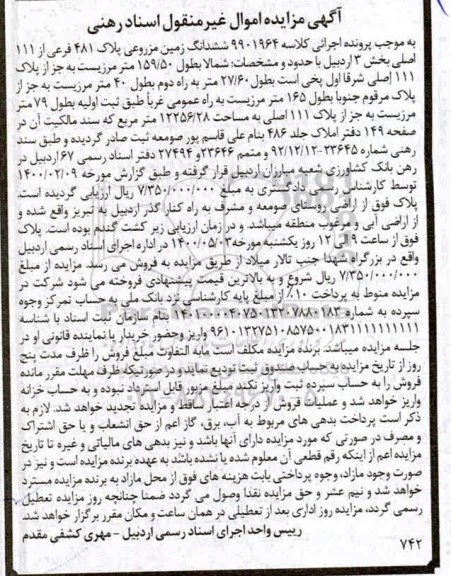 آگهی مزایده اموال غیرمنقول اسناد رهنی
به موجب پرونده اجرائی کلاسه ۹۹۰۱۹۶۴ ششدانگ زمین مزروعی پلاک ۴۸۱ فرعی از ۱۱۱
اصلی بخش ۳ اردبیل با حدود و مشخصات: شمالا بطول ۱۵۹/۵۰ متر مرزیست به جز از پلاک
۱۱۱ اصلی شرقا اول پخی است بطول ۲۷/۶۰ متر مرزیست به راه دوم بطول ۴۰ متر مرزیست به جز از
پلاک مرقوم جنوبا بطول ۱۶۵ متر مرزیست به راه عمومی غرباً طبق ثبت اولیه بطول ۷۹ متر
مرزیست به جز از پلاک ۱۱۱ اصلی به مساحت ۱۲۲۵۶/۲۸ متر مربع که سند مالکیت آن در
صفحه ۱۴۹ دفتر املاک جلد ۴۸۶ بنام علی قاسم پور صومعه ثبت صادر گردیده و طبق سند
رهنی شماره ۲۳۶۴۵-۹۲/۱۲/۱۲ و متمم ۲۳۶۴۶و ۲۷۴۹۴ دفتر اسناد رسمی ۶۷ اردبیل در
رهن بانک کشاورزی شعبه مبارزان اردبیل قرار گرفته و طبق گزارش مورخه ۱۴۰۰/۰۲/۰۹
توسط کارشناس رسمی دادگستری به مبلغ ۷/۳۵۰/۰۰۰/۰۰۰ ریال ارزیابی گردیده است.
پلاک فوق از اراضی روستای صومعه و مشرف به راه کنار گذر اردبیل به تبریز واقع شده و
از اراضی آبی و مرغوب منطقه میباشد. و در زمان ارزیابی زیر کشت گندم بوده است. پلاک
فوق از ساعت ۹ الی ۱۲ روز یکشنبه مورخه ۱۴۰۰/۰۵/۰۳ در اداره اجرای اسناد رسمی اردبیل
واقع در بزرگراه شهدا جنب تالار میلاد از طریق مزایده به فروش می رسد. مزایده از مبلغ
۷/۳۵۰/۰۰۰/۰۰۰ ریال شروع و به بالاترین قیمت پیشنهادی فروخته می شود شرکت در
مزایده منوط به پرداخت ۱۰٪ از مبلغ پایه کارشناسی نزد بانک ملی به حساب تمرکز وجوه
سپرده به شماره بنام سازمان ثبت اسناد با شناسه
واریز وحضور خریدار یا نماینده قانونی او در
جلسه مزایده میباشد. برنده مزایده مکلف است مابه التفاوت مبلغ فروش را ظرف مدت پنج
روز از تاریخ مزایده به حساب صندوق ثبت تودیع نماید و در صورتیکه ظرف مهلت مقرر مانده
فروش را به حساب سپرده ثبت واریز نکند مبلغ مزبور قابل استرداد نبوده و به حساب خزانه
واریز خواهد شد و عملیات فروش از درجه اعتبار ساقط و مزایده تجدید خواهد شد. لازم به
ذکر است پرداخت بدهی های مربوط به آب، برق، گاز اعم از حق انشعاب و یا حق اشتراک
و مصرف در صورتی که مورد مزایده دارای آنها باشد و نیز بدهی های مالیاتی و غیره تا تاریخ
مزایده اعم از اینکه رقم قطعی آن معلوم شده یا نشده باشد به عهده برنده مزایده است و نیز در
صورت وجود مازاد، وجوه پرداختی بابت هزینه های فوق از محل مازاد به برنده مزایده مسترد
خواهد شد و نیم عشر و حق مزایده نقدا وصول می گردد ضمنا چنانچه روز مزایده تعطیل
رسمی گردد، مزایده روز اداری بعد از تعطیلی در همان ساعت و مکان مقرر برگزار خواهد شد.
رییس واحد اجرای اسناد رسمی اردبیل - مهری کشفی مقدم
۷۴۲